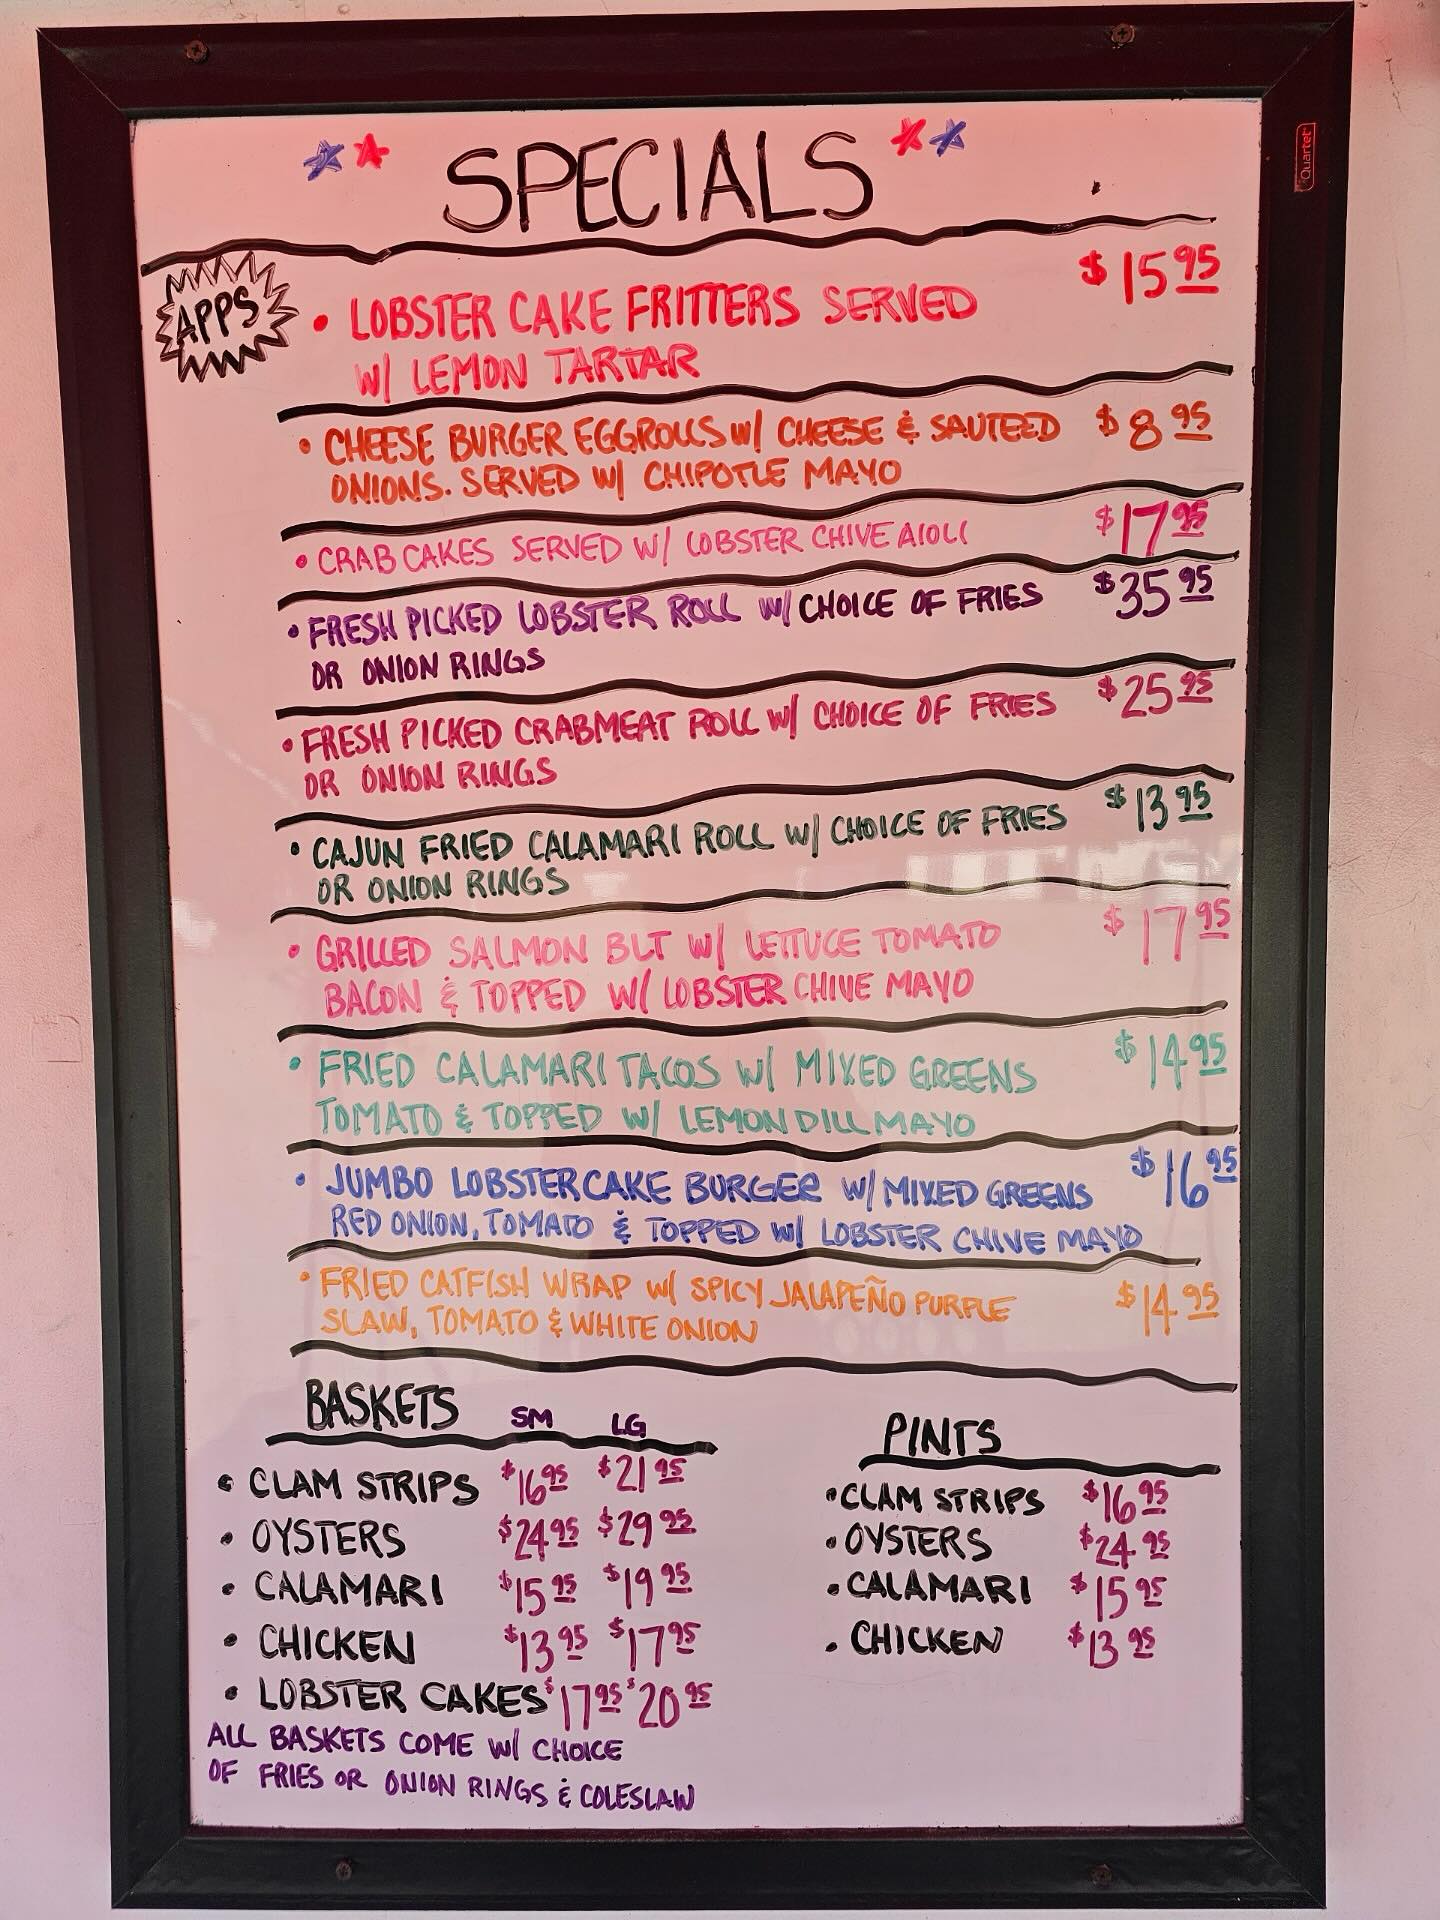 SPECIALS
Quartet
APPS
• LOBSTER CAKE FRITTERS SERVED $15.95
W/ LEMON TARTAR
• CHEESE BURGER EGGROLLS W/ CHEESE & SAUTEED $8.95
ONIONS. SERVED W/ CHIPOTLE MAYO
• CRAB CAKES SERVED W/ LOBSTER CHIVE AIOLI $17.95
• FRESH PICKED LOBSTER ROLL W/ CHOICE OF FRIES $35.95
OR ONION RINGS
• FRESH PICKED CRABMEAT ROLL W/ CHOICE OF FRIES $25.95
OR ONION RINGS
• CAJUN FRIED CALAMARI ROLL W/ CHOICE OF FRIES $13.95
OR ONION RINGS
• GRILLED SALMON BLT W/ LETTUCE TOMATO $17.95
BACON & TOPPED W/ LOBSTER CHIVE MAYO
• FRIED CALAMARI TACOS W/ MIXED GREENS $14.95
TOMATO & TOPPED W/ LEMON DILL MAYO
• JUMBO LOBSTER CAKE BURGER W/ MIXED GREENS $16.95
RED ONION, TOMATO & TOPPED W/ LOBSTER CHIVE MAYO
• FRIED CATFISH WRAP W/ SPICY JALAPEÑO PURPLE $14.95
SLAW, TOMATO & WHITE ONION
BASKETS SM LG
• CLAM STRIPS $16.95 $21.95
• OYSTERS $24.95 $29.95
• CALAMARI $15.95 $19.95
• CHICKEN $13.95 $17.95
• LOBSTER CAKES $17.95 $20.95
ALL BASKETS COME W/ CHOICE
OF FRIES OR ONION RINGS & COLESLAW
PINTS
• CLAM STRIPS $16.95
• OYSTERS $24.95
• CALAMARI $15.95
• CHICKEN $13.95